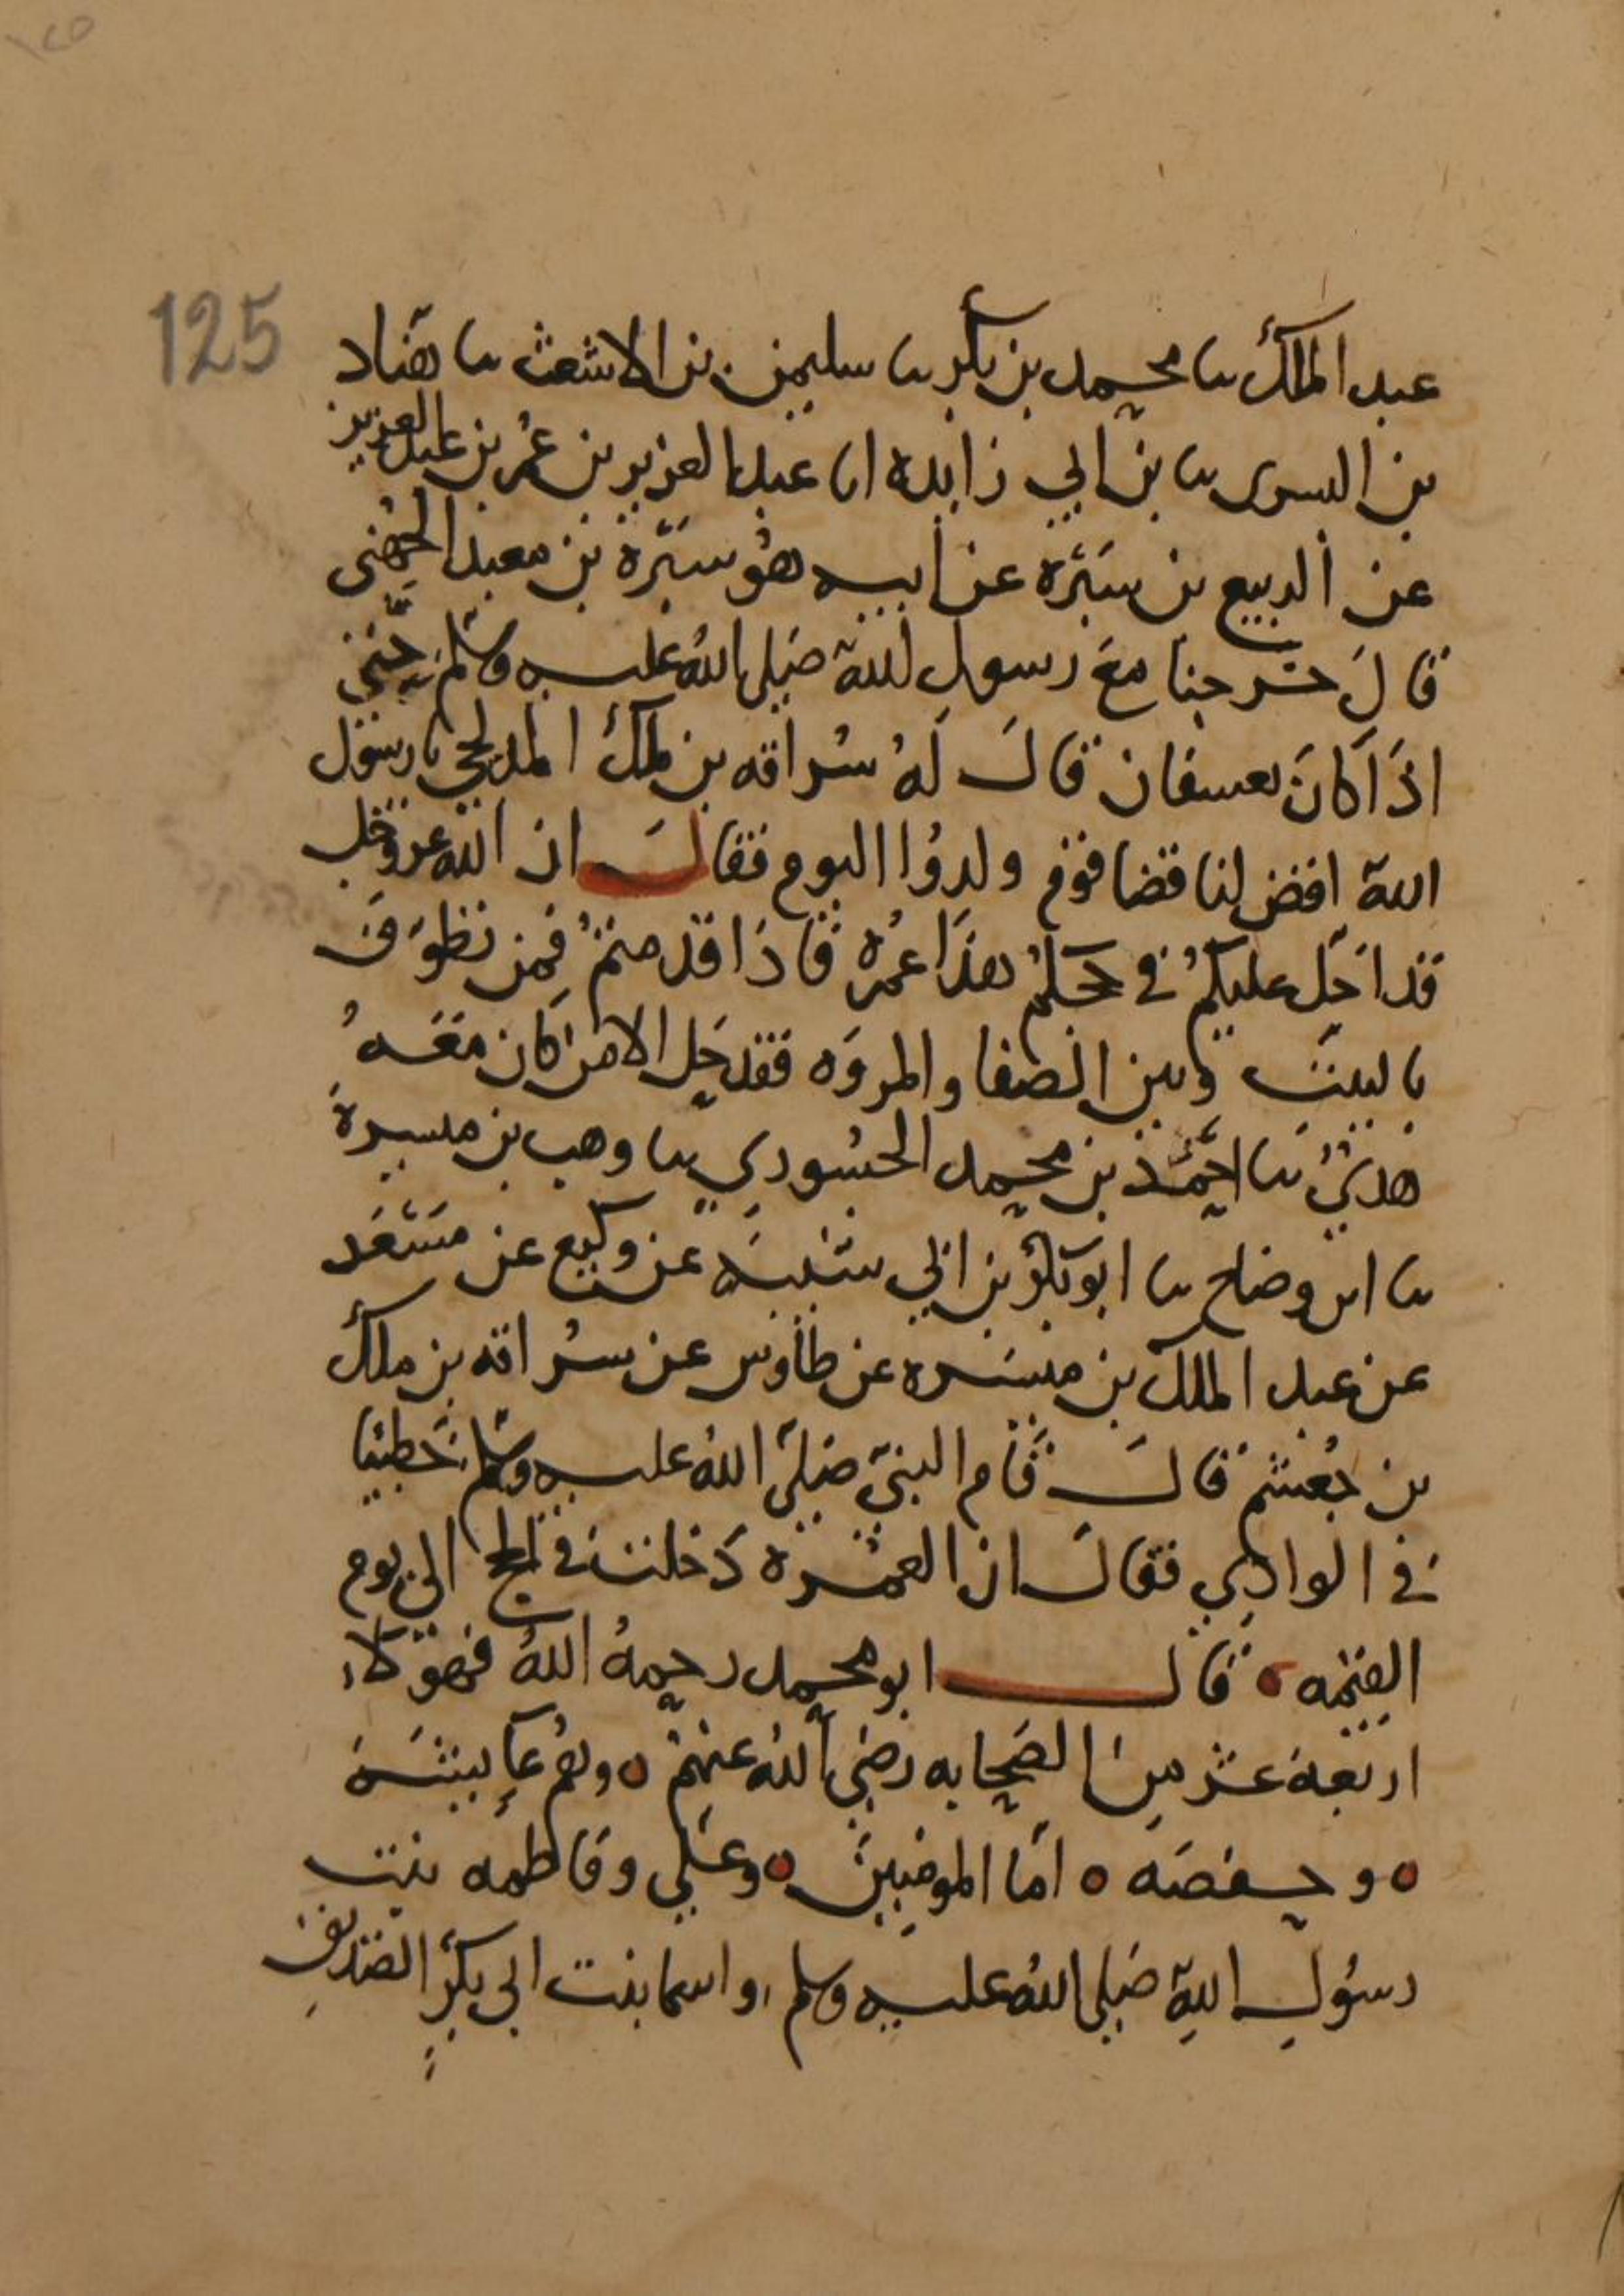 125
عبد الملك ثنا محمد بن بكر ثنا سليمن بن الاشعث ثنا هناد
بن السرى ثنا بن ابي زايده انا عبد العزيز بن عمر بن عبد العزيز
عن الربيع بن سبرة عن ابيه هو سبرة بن معبد الجهنى
قال خرجنا مع رسول الله صلى الله عليه وسلم حتى
اذا كان بعسفان قال له سراقه بن ملك المدلجي يا رسول
الله اقض لنا قضا قوم ولدوا اليوم فقال ان الله عز وجل
قد ادخل عليكم في حجكم هذا عمرة فاذا قدمتم فمن تطوف
بالبيت وبين الصفا والمروه فقد حل الا من كان معه
هدي ثنا احمد بن محمد الجسوري ثنا وهب بن مسرة
ثنا ابن وضاح ثنا ابو بكر بن ابي شيبه عن وكيع عن مسعر
عن عبد الملك بن ميسره عن طاوس عن سراقه بن ملك
بن جعشم قال قام النبي صلى الله عليه وسلم خطيبا
في الوادي فقال ان العمرة دخلت في الحج الى يوم
القيمه قال ابو محمد رحمه الله فهولاء
اربعة عشر من الصحابه رضي الله عنهم وهم عايشة
وحفصه اما المومنين وعلي وفاطمه بنت
رسول الله صلى الله عليه وسلم واسما بنت ابي بكر الصديق